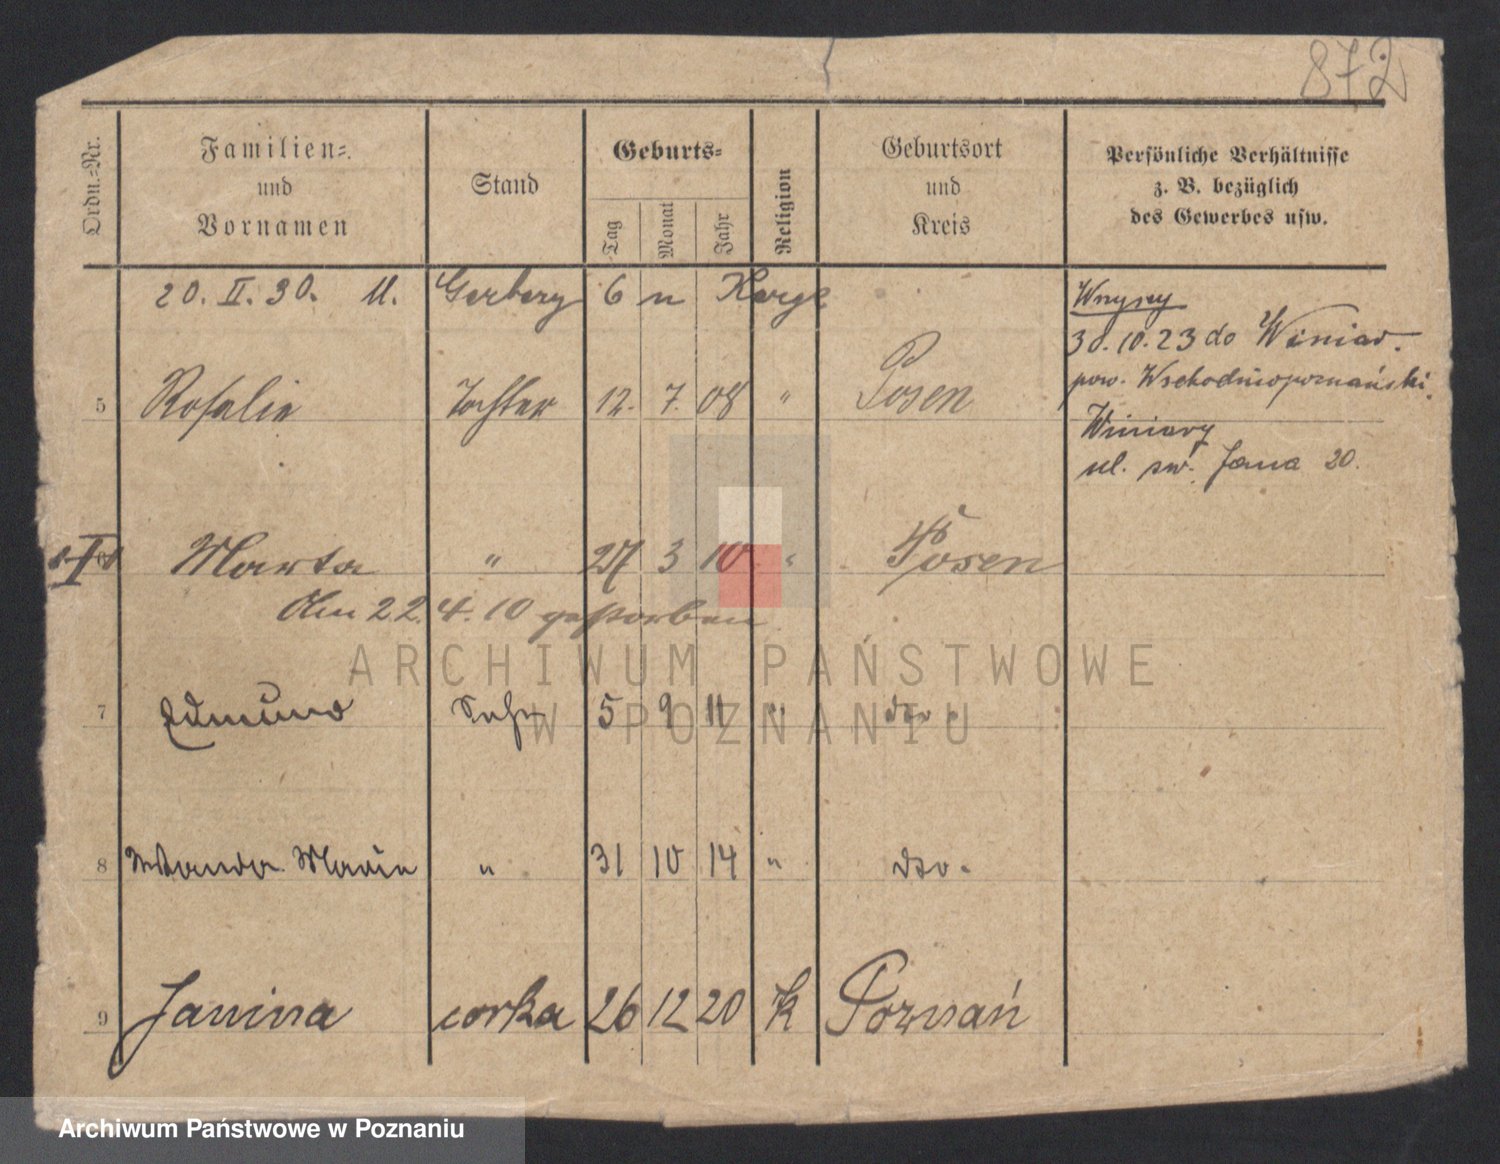 872
Ordn.-Nr.
Familien-
und
Vornamen
Stand
Geburts-
Tag
Monat
Jahr
Religion
Geburtsort
und
Kreis
Persönliche Verhältnisse
z. B. bezüglich
des Gewerbes usw.
20. II. 30. U. Gerbery 6
30.10.23 do Winiar.
pow. Wschodniopoznański.
5 Rosalie Tochter 12. 7. 08 " Posen
Winiary
ul. św. Jana 20.
6 Marta " 27 3 10 " Posen
Am 22. 4. 10 gestorben
7 Edmund Sohn 5 9 11 " dto.
8 Wanda Marie " 31 10 14 " dto.
9 Janina corka 26 12 20 k Poznań
ARCHIWUM PAŃSTWOWE
W POZNANIU
Archiwum Państwowe w Poznaniu